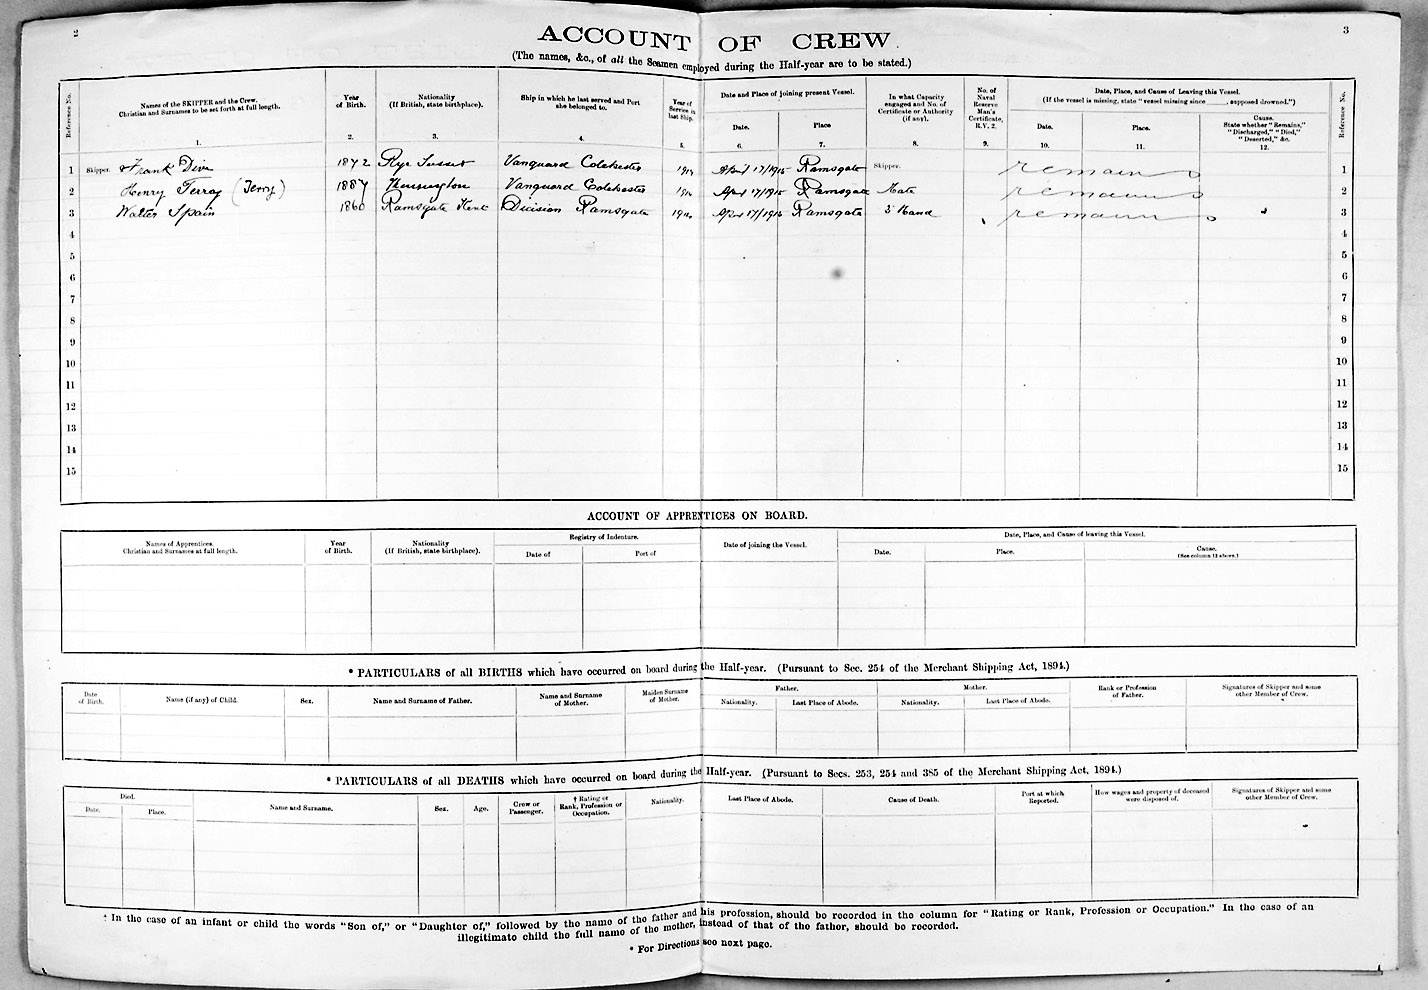 2
3
ACCOUNT OF CREW.
(The names, &c., of all the Seamen employed during the Half-year are to be stated.)
Reference No.
Names of the SKIPPER and the Crew. Christian and Surnames to be set forth at full length.
1.
Year of Birth.
2.
Nationality (If British, state birthplace).
3.
Ship in which he last served and Port she belonged to.
4.
Year of Service in last Ship.
5.
Date and Place of joining present Vessel.
Date.
6.
Place
7.
In what Capacity engaged and No. of Certificate or Authority (if any).
8.
No. of Naval Reserve Man's Certificate, R.V. 2.
9.
Date, Place, and Cause of Leaving this Vessel.
(If the vessel is missing, state "vessel missing since ____, supposed drowned.")
Date.
10.
Place.
11.
Cause.
State whether "Remains," "Discharged," "Died," "Deserted," &c.
12.
Reference No.
1 Skipper. Frank Dive 1872 Rye Sussex Vanguard Colchester 1914 April 17/1915 Ramsgate Skipper. remains 1
2 Henry Terray (Terry) 1887 Kensington Vanguard Colchester 1914 April 17/1915 Ramsgate Mate remains 2
3 Walter Spain 1860 Ramsgate Kent Decision Ramsgate 1914 April 17/1915 Ramsgate 3 Hand remains 3
4 4
5 5
6 6
7 7
8 8
9 9
10 10
11 11
12 12
13 13
14 14
15 15
ACCOUNT OF APPRENTICES ON BOARD.
Names of Apprentices. Christian and Surnames at full length.
Year of Birth.
Nationality (If British, state birthplace).
Registry of Indenture.
Date of
Port of
Date of joining the Vessel.
Date, Place, and Cause of leaving this Vessel.
Date.
Place.
Cause.
(See column 12 above.)
* PARTICULARS of all BIRTHS which have occurred on board during the Half-year. (Pursuant to Sec. 254 of the Merchant Shipping Act, 1894.)
Date of Birth.
Name (if any) of Child.
Sex.
Name and Surname of Father.
Name and Surname of Mother.
Maiden Surname of Mother.
Father.
Nationality.
Last Place of Abode.
Mother.
Nationality.
Last Place of Abode.
Rank or Profession of Father.
Signatures of Skipper and some other Member of Crew.
* PARTICULARS of all DEATHS which have occurred on board during the Half-year. (Pursuant to Secs. 253, 254 and 385 of the Merchant Shipping Act, 1894.)
Died.
Date.
Place.
Name and Surname.
Sex.
Age.
Crew or Passenger.
† Rating or Rank, Profession or Occupation.
Nationality.
Last Place of Abode.
Cause of Death.
Port at which Reported.
How wages and property of deceased were disposed of.
Signatures of Skipper and some other Member of Crew.
† In the case of an infant or child the words "Son of," or "Daughter of," followed by the name of the father and his profession, should be recorded in the column for "Rating or Rank, Profession or Occupation." In the case of an
illegitimate child the full name of the mother, instead of that of the father, should be recorded.
* For Directions see next page.